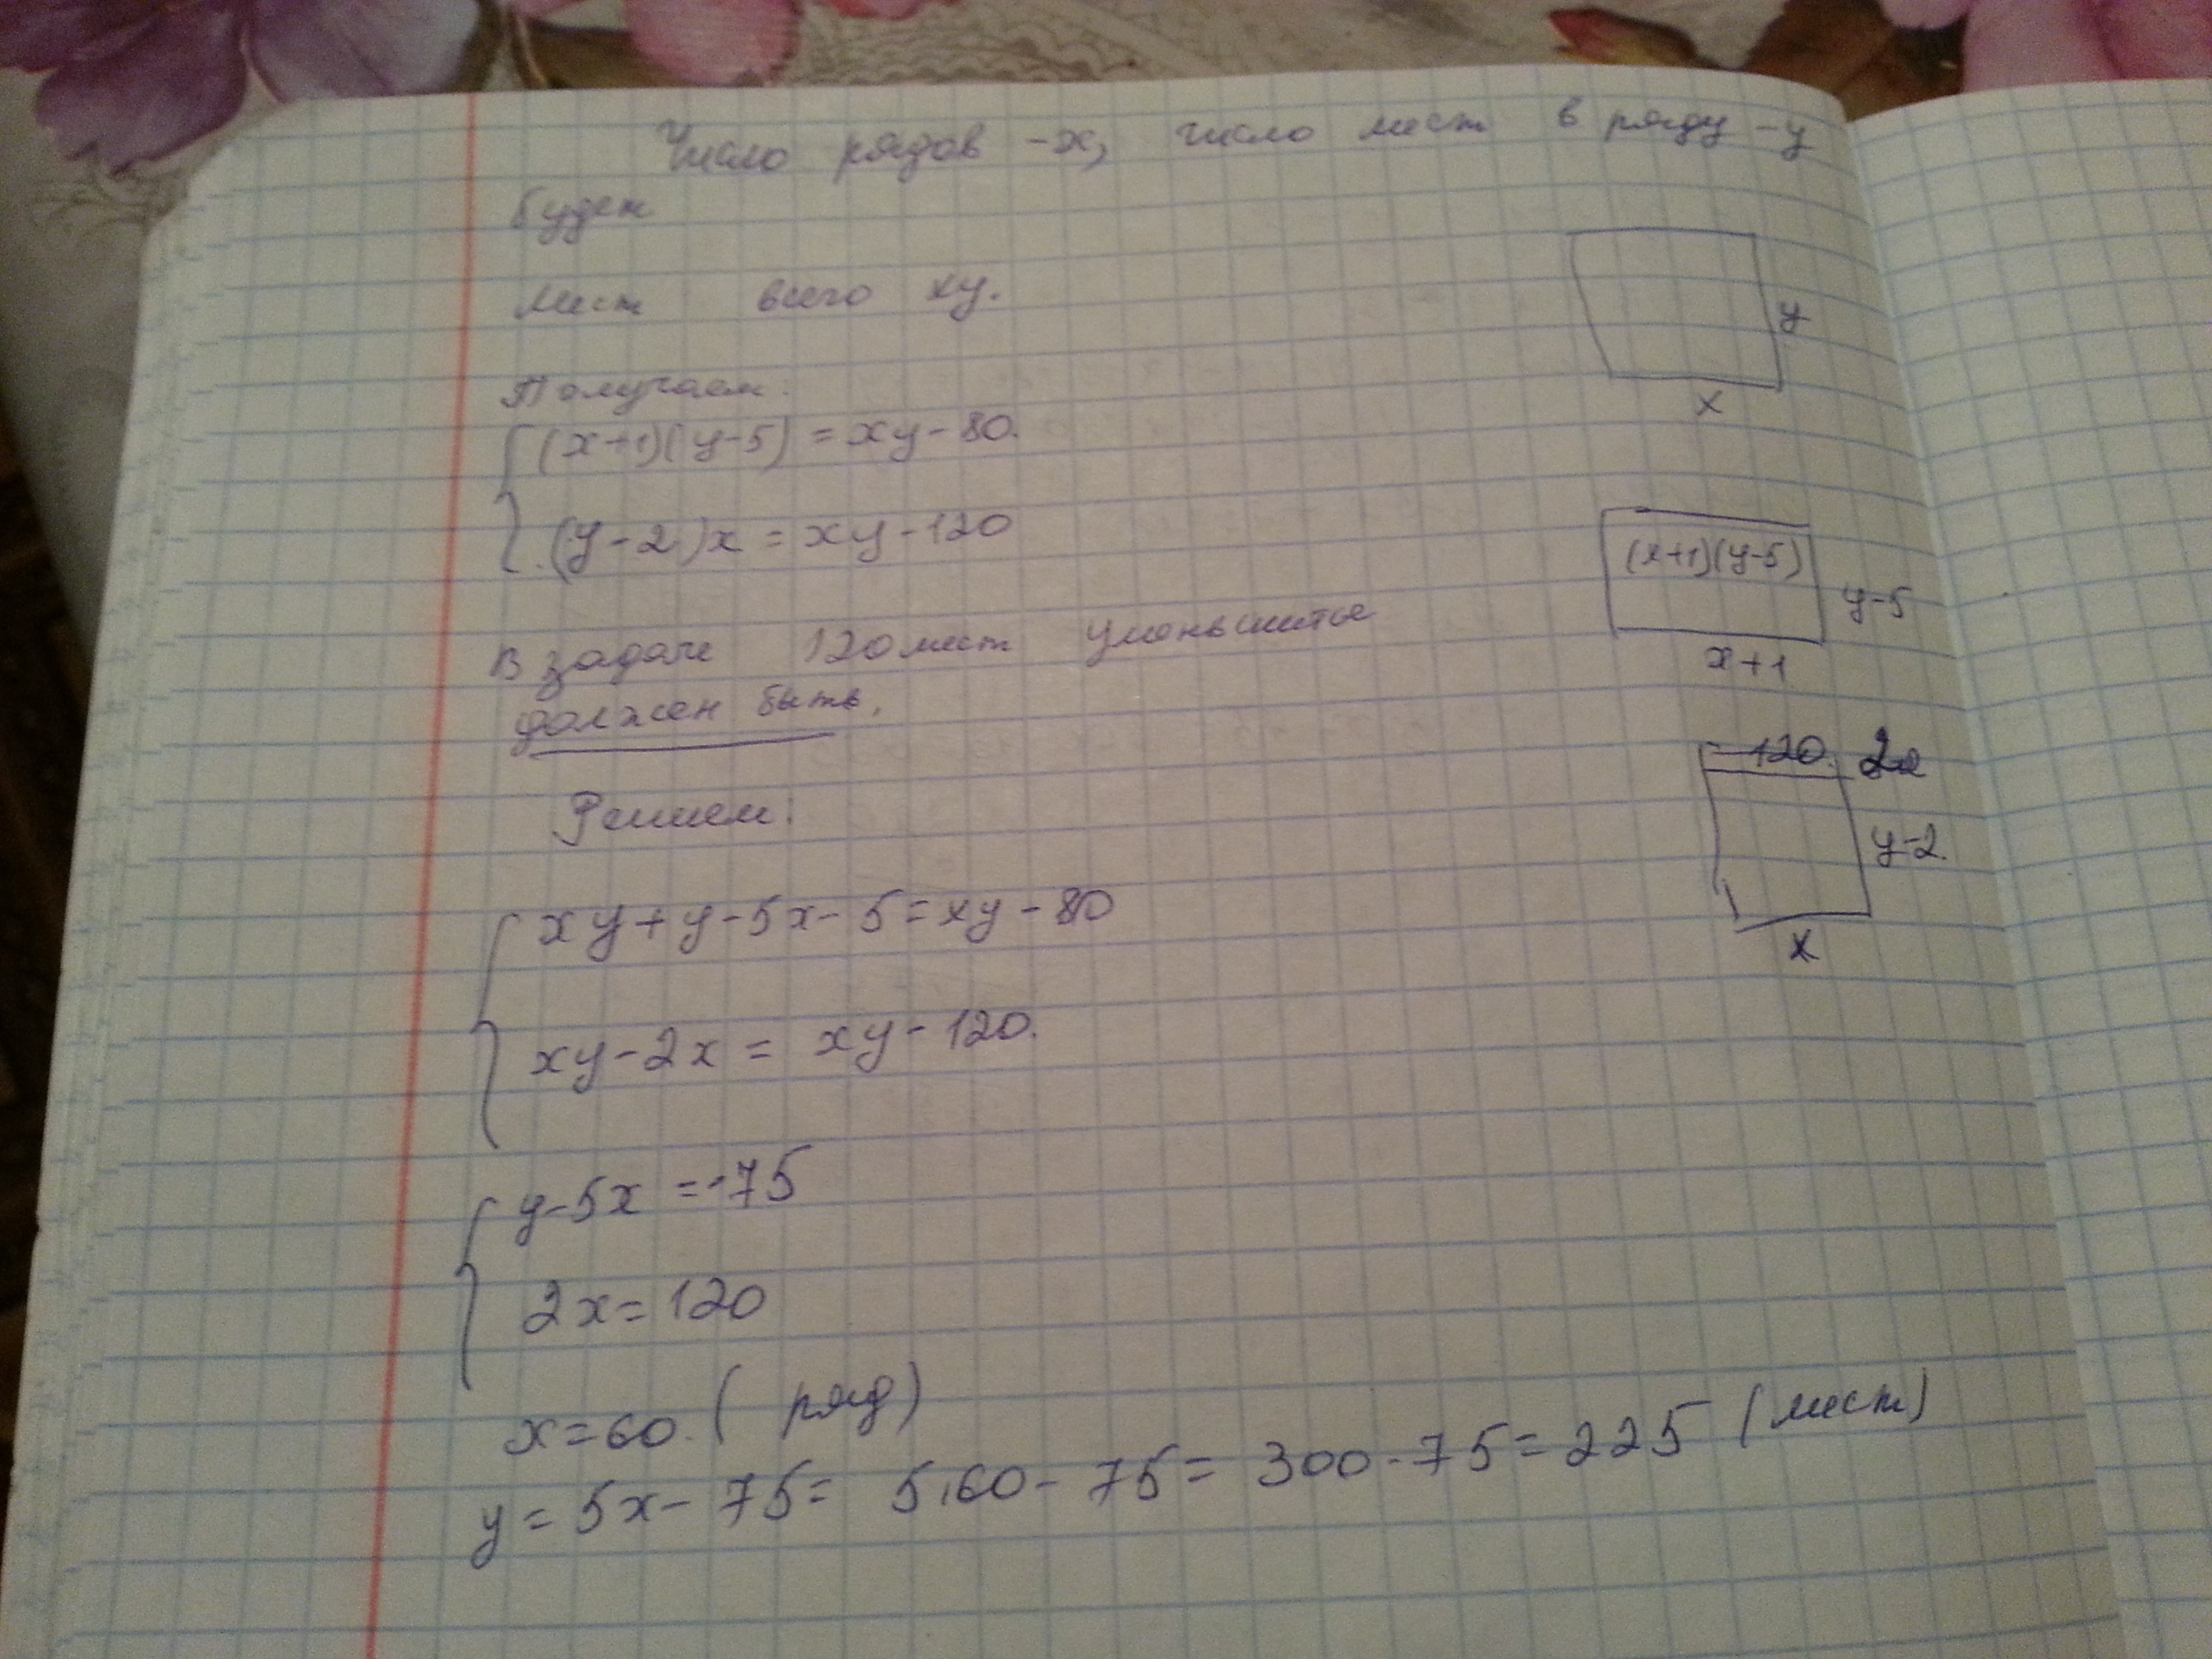 Число рядов -x, число мест в ряду -y
будет
мест всего xy.
y
x
Получаем:
(x+1)(y-5) = xy-80.
(y-2)x = xy-120
(x+1)(y-5)
y-5
x+1
В задаче 120 мест уменьшитье
должен быть.
120.
y-2.
x
Решием:
xy+y-5x-5=xy-80
xy-2x = xy-120.
y-5x =-75
2x=120
x=60. ( ряд)
y= 5x- 75= 5.60- 75= 300-75=225 (мест)